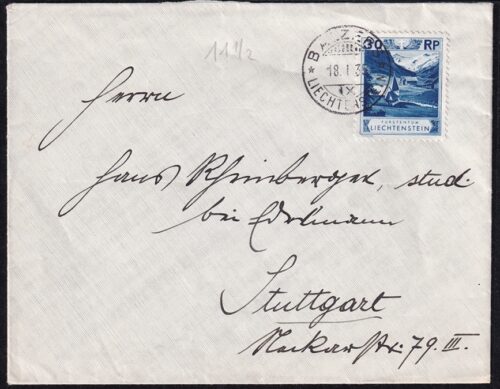 11 1/2
BALZERS
18.I.3
IX
LIECHTENSTEIN
30 RP
FÜRSTENTUM
LIECHTENSTEIN
Herrn
Hans Rheinberger, stud.
bei Edelmann
Stuttgart
Neckarstr. 79. III.